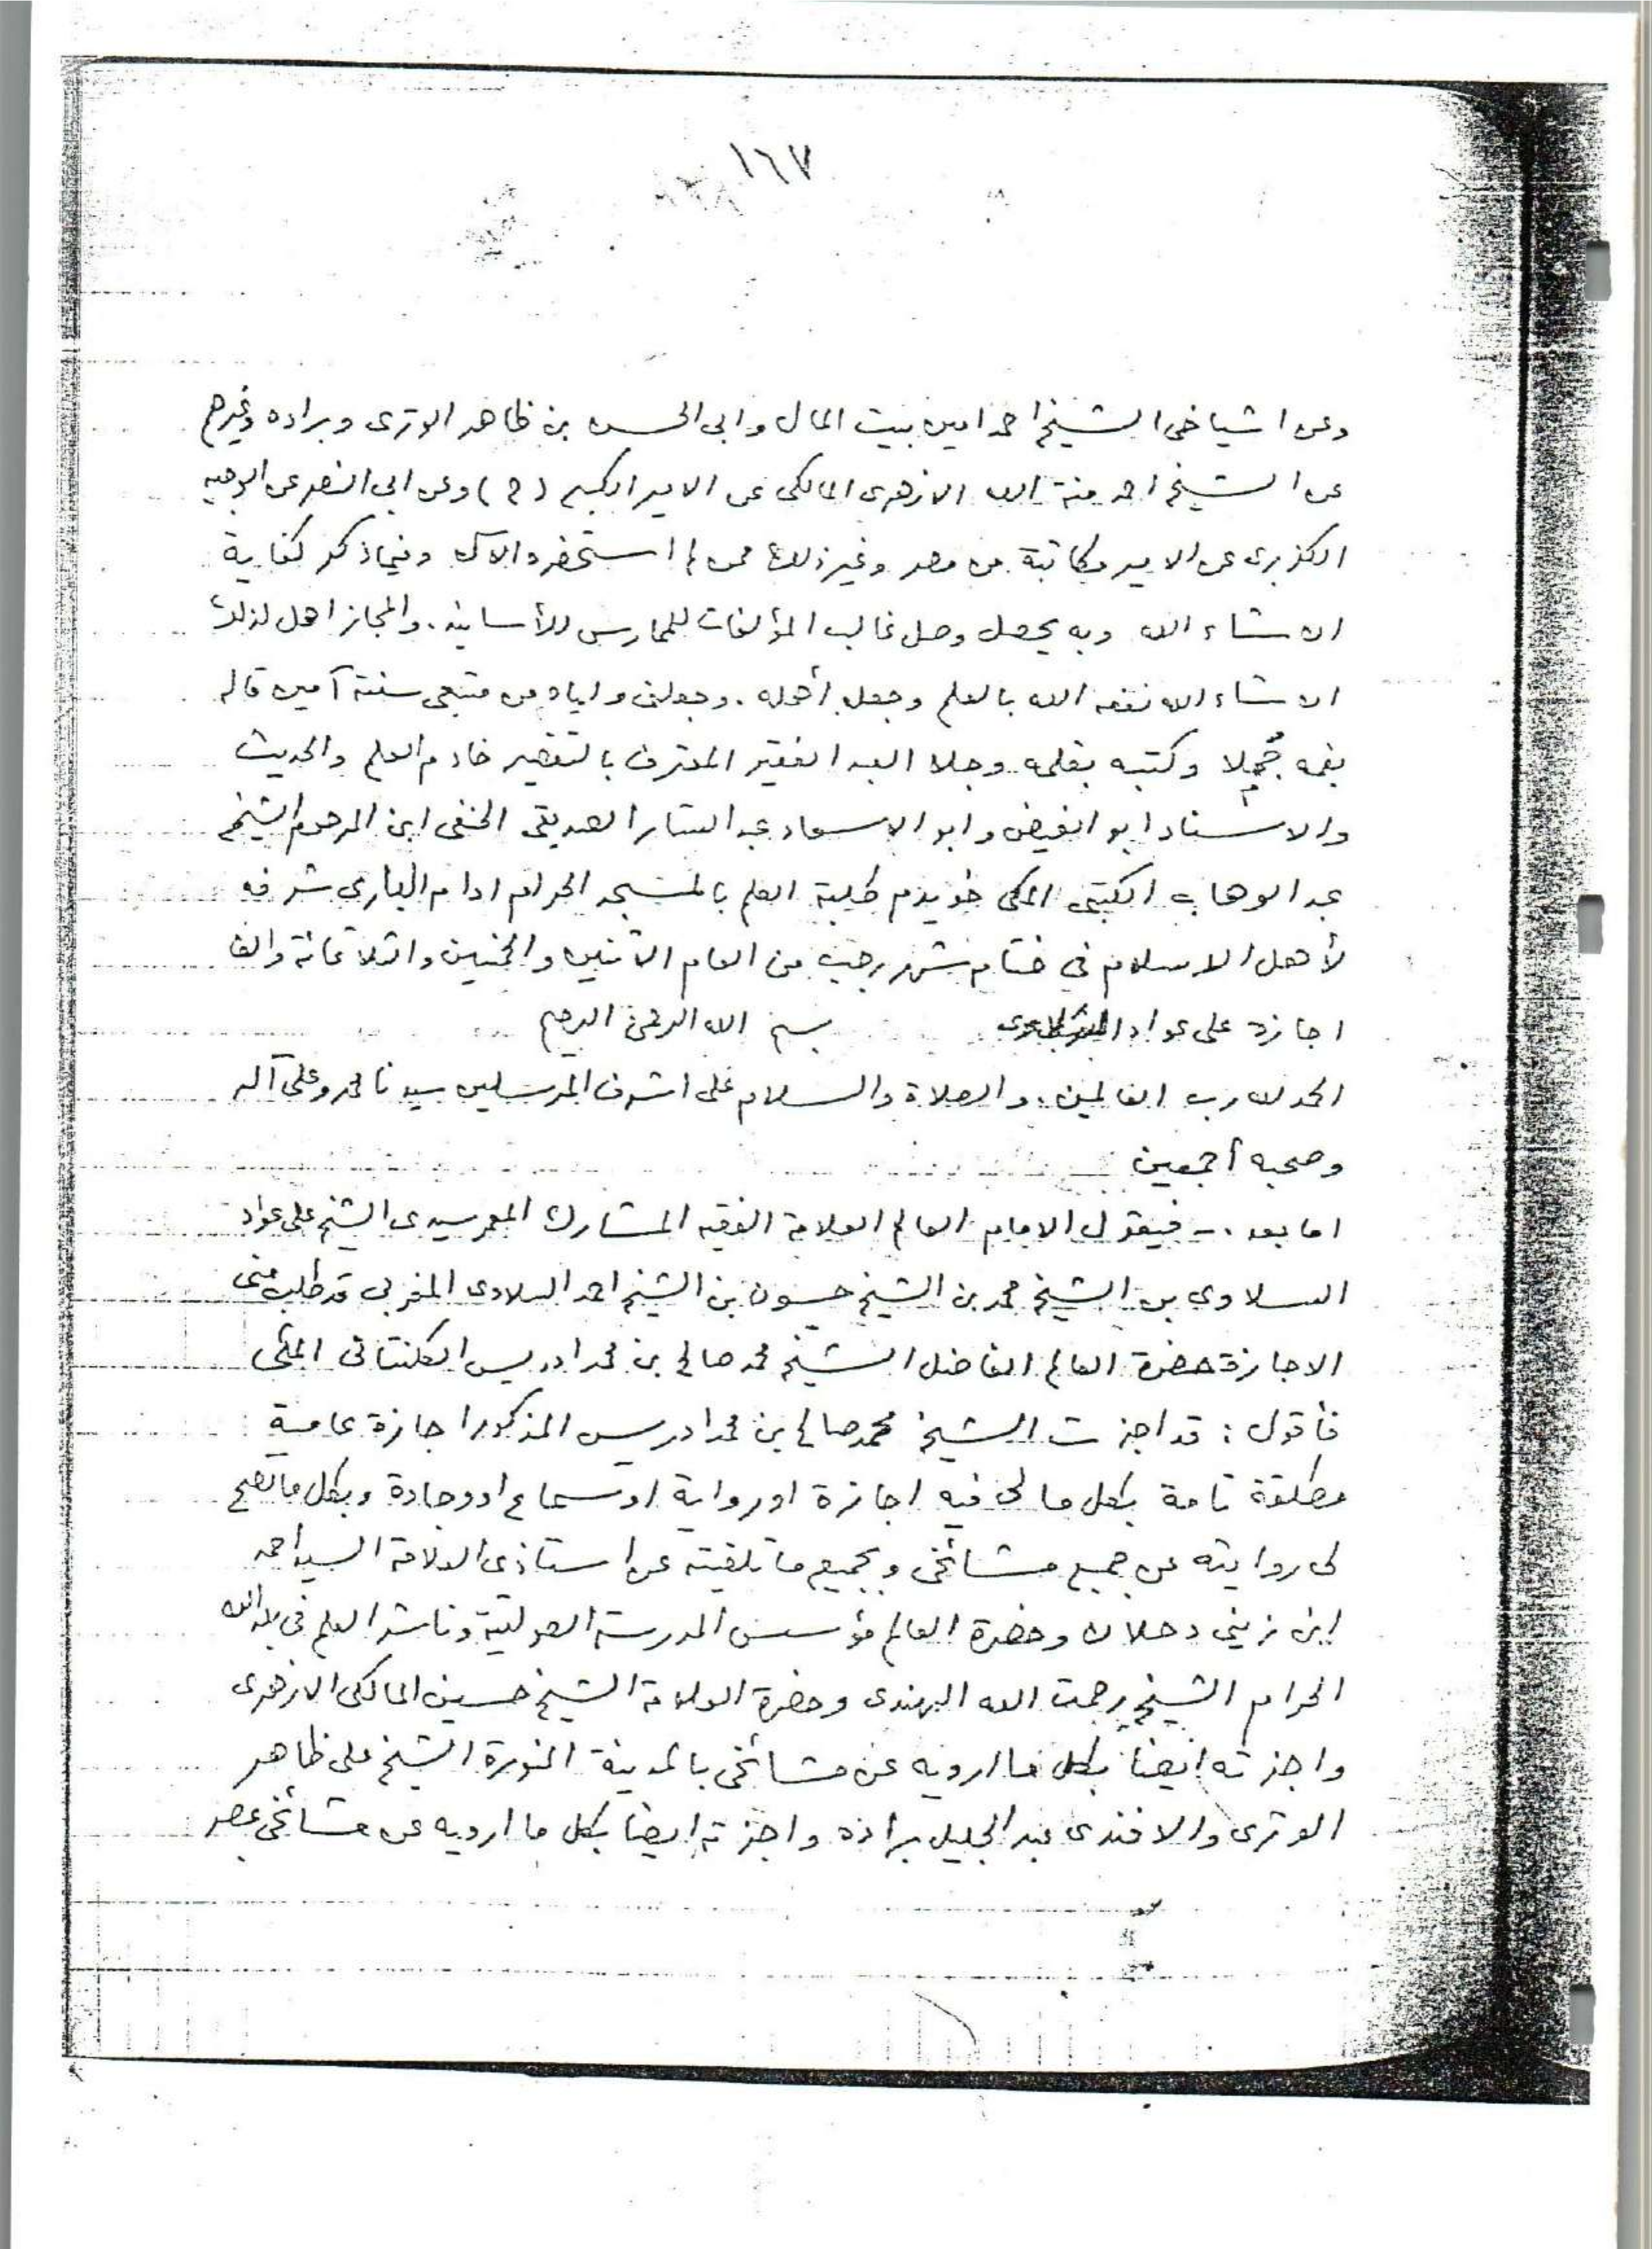 ١٦٧
وعن اشياخى الشيخ احمد امين بيت المال وابى الحسن بن ظاهر الوترى وبراده وغيرهم
عن الشيخ احمد منة الله الازهرى المالكى عن الامير الكبير (ح) وعن ابى النصر عن الوجيه
الكزبرى عن الامير مكاتبة من مصر وغير ذلك ممن لم استحضره الآن وفيما ذكر كفاية
ان شاء الله وبه يحصل وصل غالب المؤلفات للممارس للأسانيد. والمجاز اهل لذلك
ان شاء الله نفعه الله بالعلم وجعله أهله. وجعلنى واياه من متبعى سنته آمين قاله
بفمه مجملا وكتبه بقلمه وجلا العبد الفقير المعترف بالتقصير خادم العلم والحديث
والاسناد ابو الفيض وابو الاسعاد عبد الستار الصديقى الحنفى ابن المرحوم الشيخ
عبد الوهاب الكتبى المكى خويدم طلبة العلم بالمسجد الحرام ادام البارى شرفه
لأهل الاسلام فى ختام شهر رجب من العام الاثنين والخمسين والثلاثمائة والف
اجازة على عواد السلاوى بسم الله الرحمن الرحيم
الحمد لله رب العالمين. والصلاة والسلام على اشرف المرسلين سيدنا محمد وعلى آله
وصحبه أجمعين
اما بعد .- فيقول الامام العالم العلامة الفقيه المشارك المعمر سيدى الشيخ على عواد
السلاوى بن الشيخ محمد بن الشيخ حسون بن الشيخ احمد السلاوى المغربى قد طلب منى
الاجازة حضرة العالم الفاضل الشيخ محمد صالح بن محمد ادريس الكلنتانى المكى
فأقول : قد اجزت الشيخ محمد صالح بن محمد ادريس المذكور اجازة عامة
مطلقة تامة بكل ما لى فيه اجازة او رواية او سماع او وجادة وبكل ما تصح
لى روايته عن جميع مشائخى وبجميع ما تلقيته عن استاذى العلامة السيد احمد
ابن زينى دحلان وحضرة العالم مؤسس المدرسة الصولتية وناشر العلم فى بلد الله
الحرام الشيخ رحمت الله الهندى وحضرة العلامة الشيخ حسين المالكى الازهرى
واجزته ايضا بكل ما ارويه عن مشائخى بالمدينة المنورة الشيخ على ظاهر
الوترى والافندى عبد الجليل براده واجزته ايضا بكل ما ارويه عن مشائخى بمصر